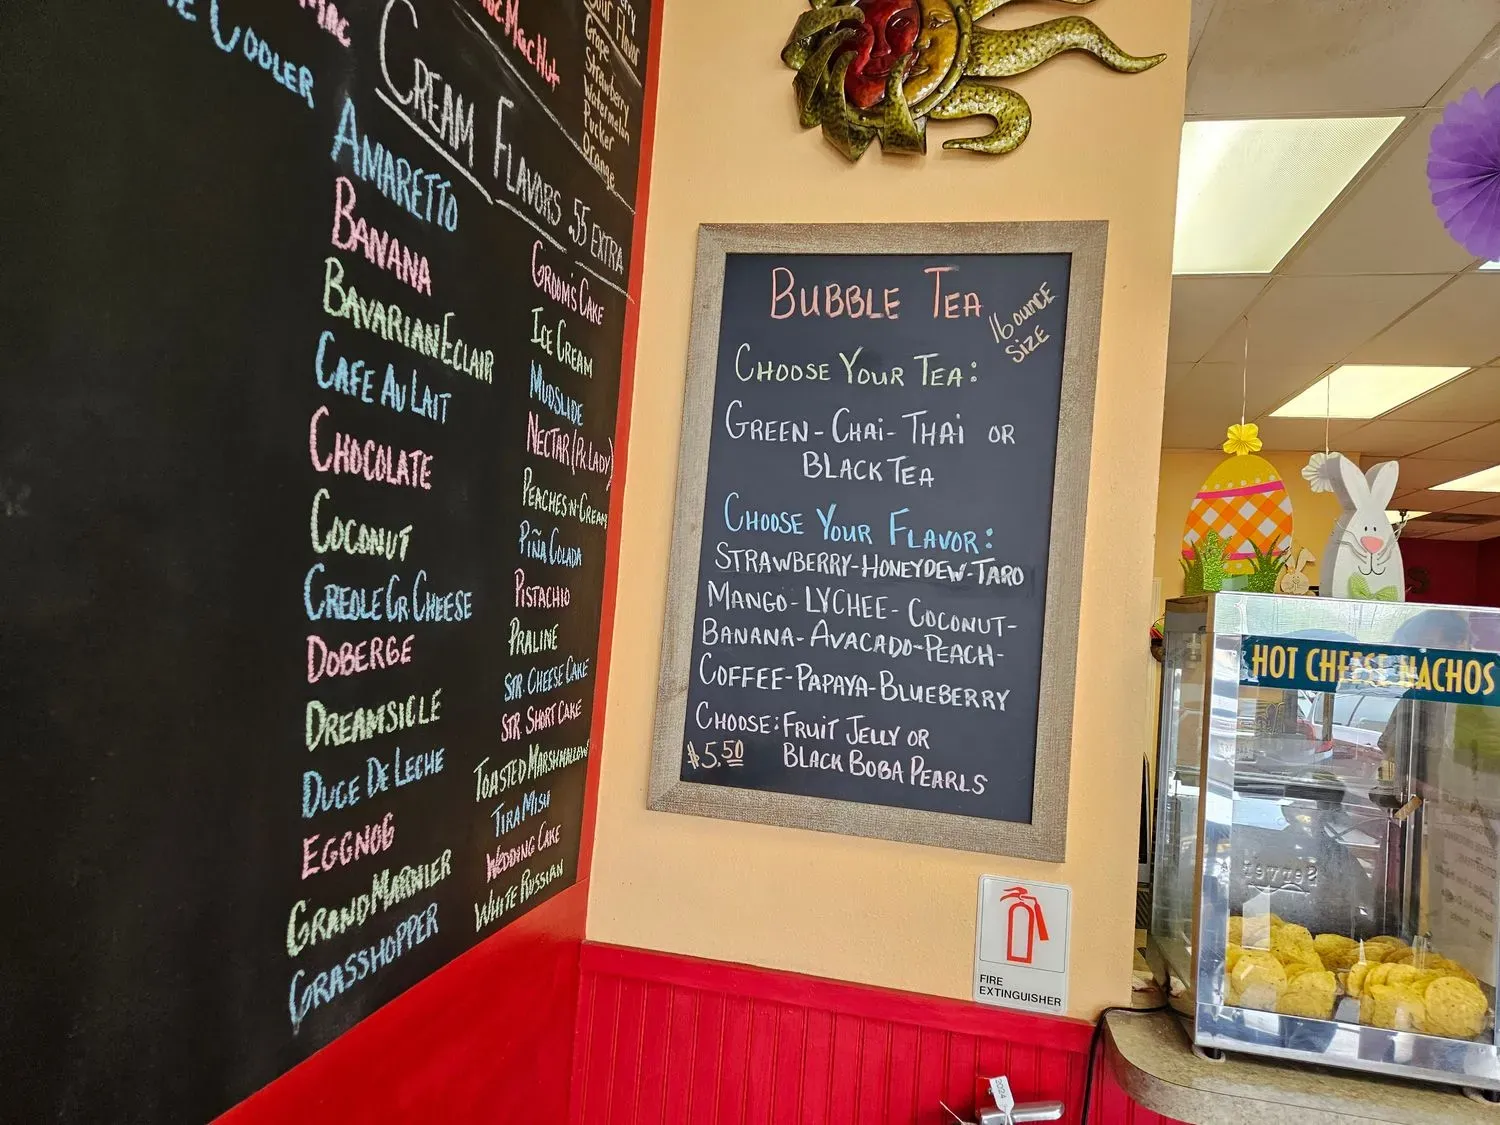 COOLER
MAC
MacNut
Sour Flavor
Grape
Strawberry
Watermelon
Pucker
Orange
CREAM FLAVORS .55 EXTRA
AMARETTO
BANANA
BAVARIAN ECLAIR
CAFE AU LAIT
CHOCOLATE
COCONUT
CREOLE CR. CHEESE
DOBERGE
DREAMSICLE
DUCE DE LECHE
EGGNOG
GRAND MARNIER
GRASSHOPPER
GROOM'S CAKE
ICE CREAM
MUDSLIDE
NECTAR (PK LADY)
PEACHES-N-CREAM
PIÑA COLADA
PISTACHIO
PRALINE
STR. CHEESE CAKE
STR. SHORT CAKE
TOASTED MARSHMALLOW
TIRA MISU
WEDDING CAKE
WHITE RUSSIAN
BUBBLE TEA
16 OUNCE
SIZE
CHOOSE YOUR TEA:
GREEN-CHAI-THAI OR
BLACK TEA
CHOOSE YOUR FLAVOR:
STRAWBERRY-HONEYDEW-TARO
MANGO-LYCHEE-COCONUT-
BANANA-AVACADO-PEACH-
COFFEE-PAPAYA-BLUEBERRY
CHOOSE: FRUIT JELLY OR
$5.50 BLACK BOBA PEARLS
FIRE
EXTINGUISHER
HOT CHEESE NACHOS
Server
2024